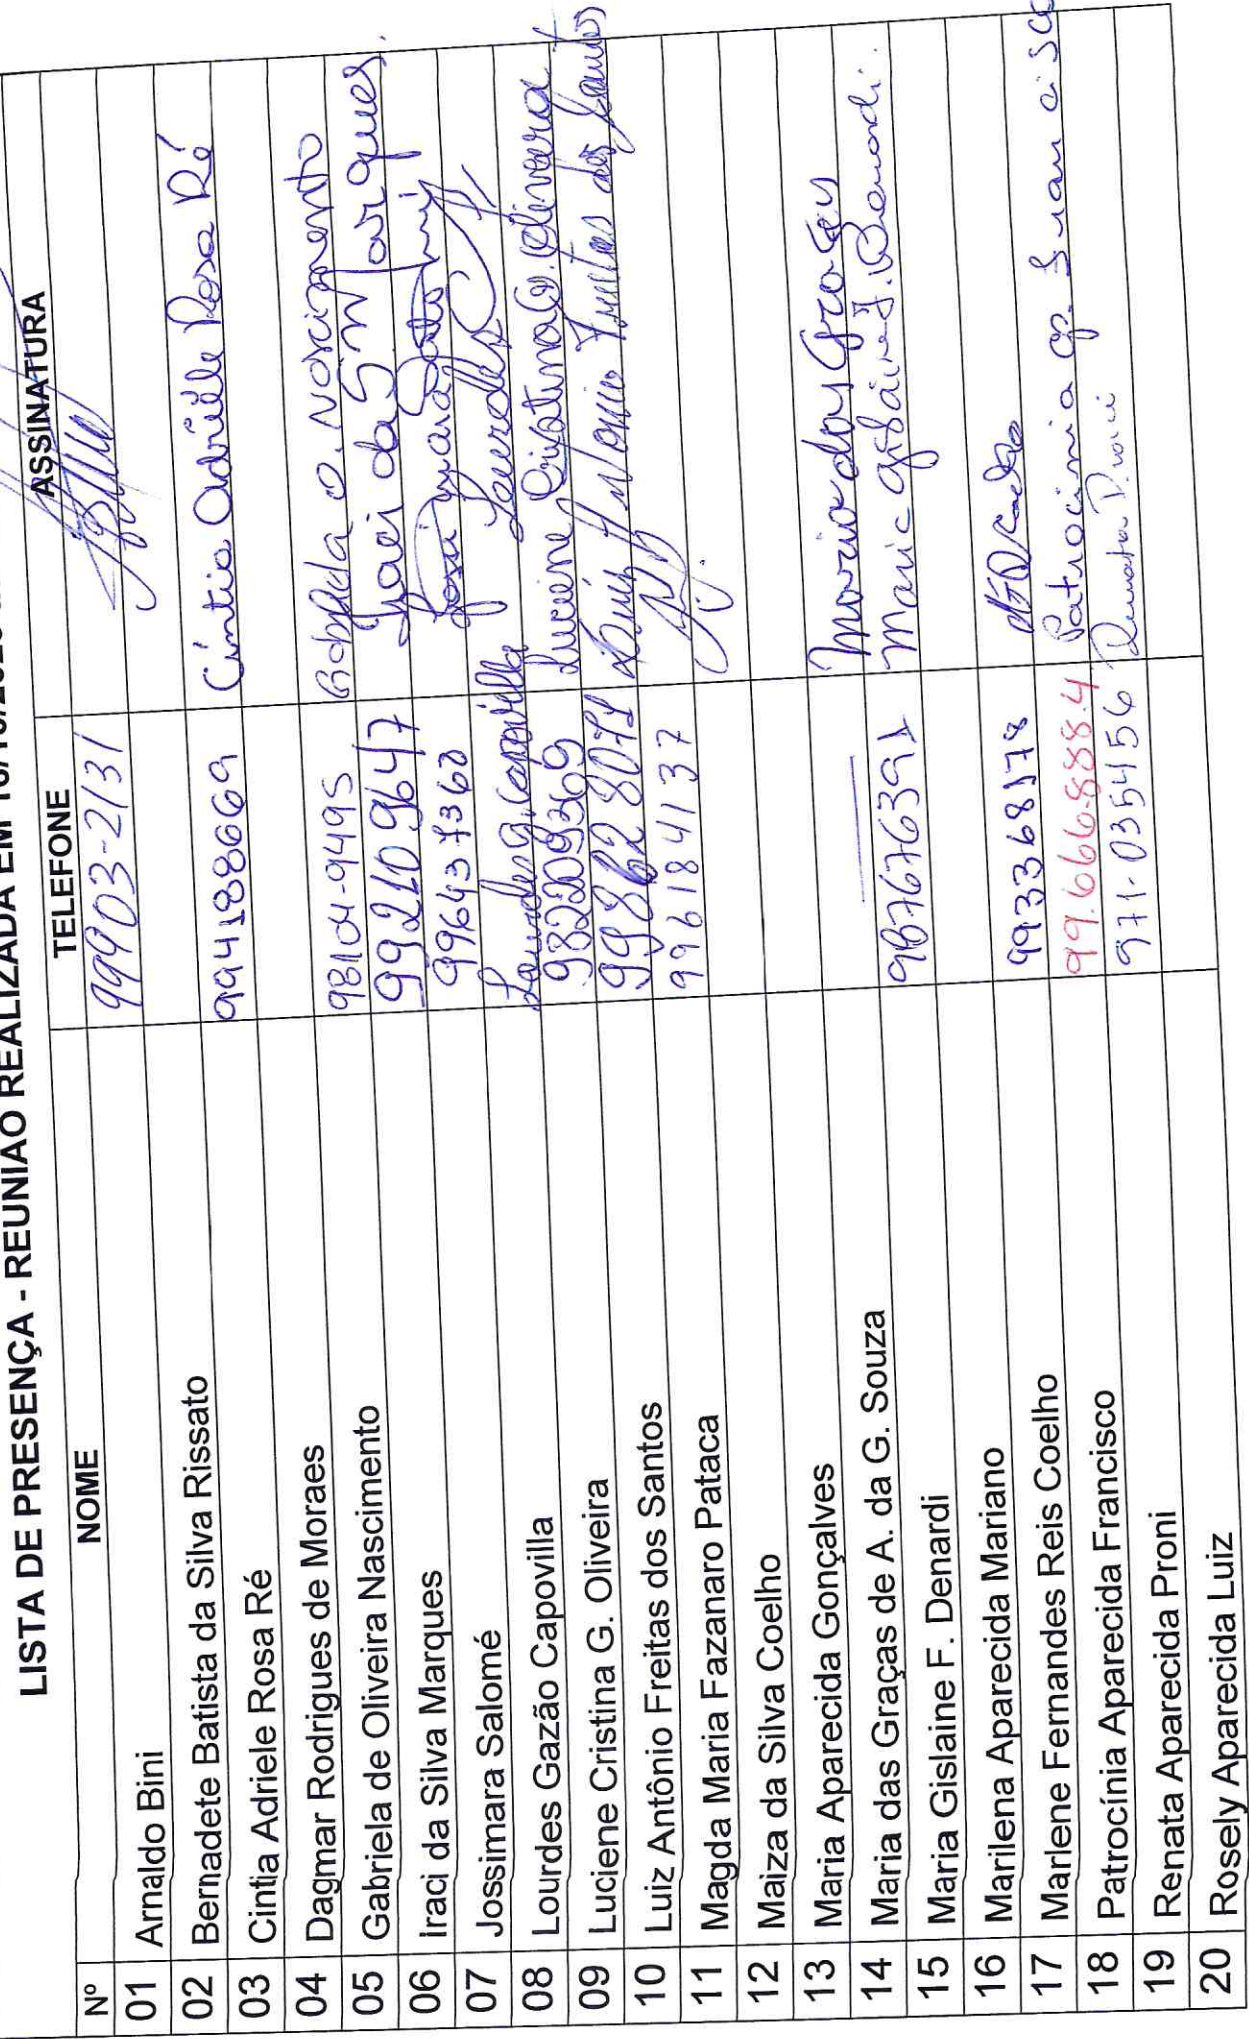 LISTA DE PRESENÇA - REUNIÃO REALIZADA EM
Nº NOME TELEFONE ASSINATURA
01 Arnaldo Bini 99903-2131
02 Bernadete Batista da Silva Rissato
03 Cintia Adriele Rosa Ré 994188669 Cíntia Adriele Rosa Ré
04 Dagmar Rodrigues de Moraes
05 Gabriela de Oliveira Nascimento 98104-9495 Gabriela O. Nascimento
06 Iraci da Silva Marques 992109647 Iraci da S Marques.
07 Jossimara Salomé 996437360 Jossimara
08 Lourdes Gazão Capovilla Lourdes G. Capovilla Lourdes
09 Luciene Cristina G. Oliveira 982209369 Luciene Cristina G. Oliveira
10 Luiz Antônio Freitas dos Santos 99862 8071 Luiz Antonio Freitas dos Santos
11 Magda Maria Fazanaro Pataca 996184137
12 Maiza da Silva Coelho
13 Maria Aparecida Gonçalves
14 Maria das Graças de A. da G. Souza Maria das Graças
15 Maria Gislaine F. Denardi 987676391 Maria Gislaine F. Denardi.
16 Marilena Aparecida Mariano
17 Marlene Fernandes Reis Coelho 993368178
18 Patrocínia Aparecida Francisco 99.666-888.4 Patrocinia Ap. Francisco
19 Renata Aparecida Proni 971-035456 Renata P. Proni
20 Rosely Aparecida Luiz